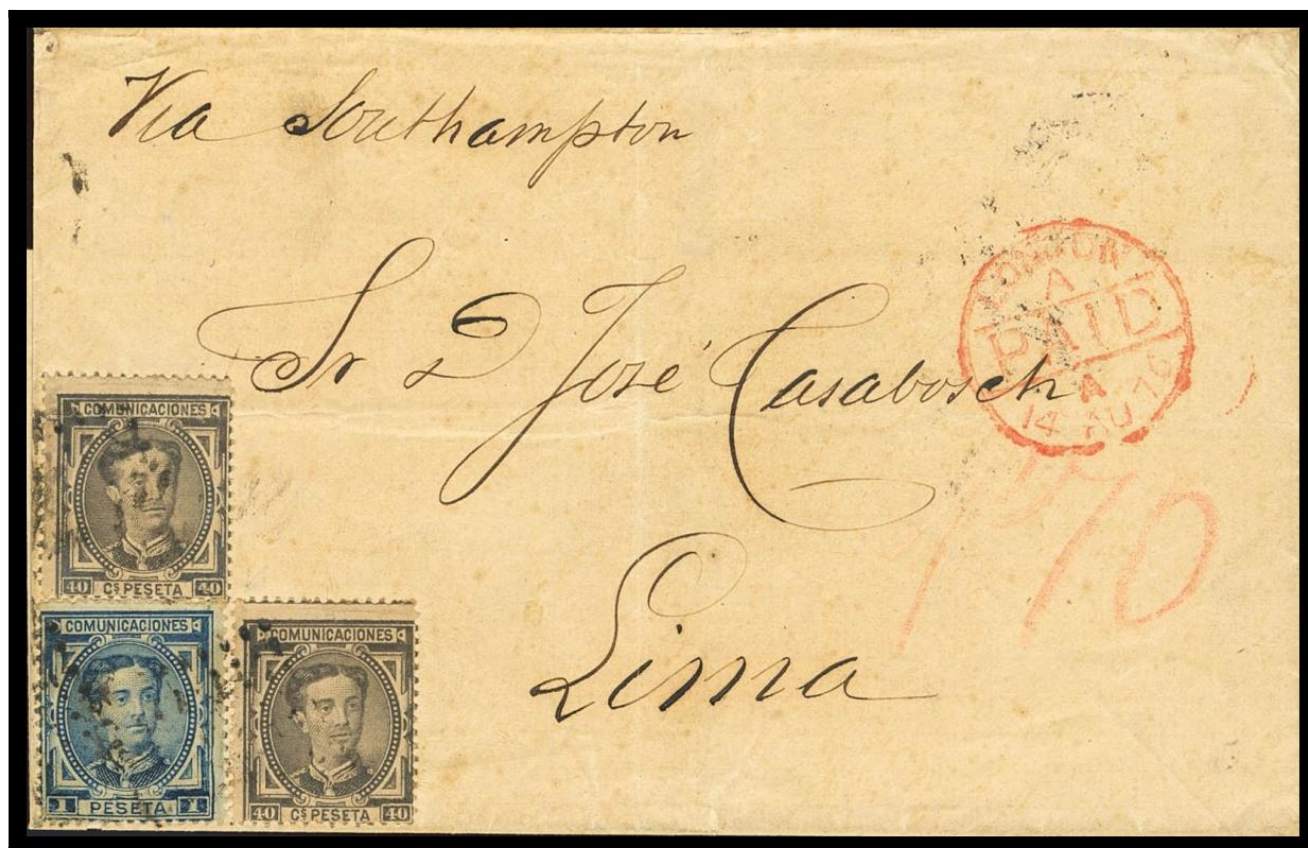 Via Southampton
LONDON
A
PAID
A
14 AU 76
Sr D José Casabosch
Lima
COMUNICACIONES
40 Cs PESETA 40
COMUNICACIONES
1 PESETA 1
COMUNICACIONES
40 Cs PESETA 40